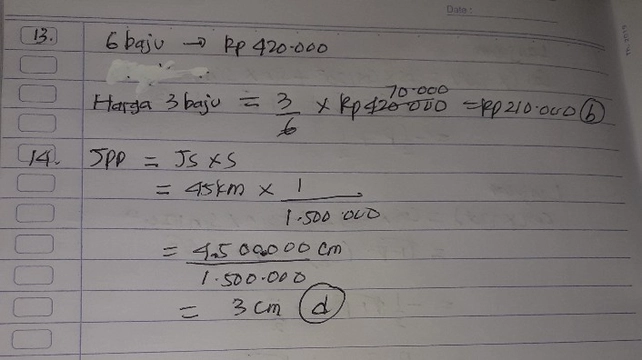 Date :
13. 6 baju → Rp 420.000
Harga 3 baju = 3/6 x Rp 420.000 70.000 = Rp 210.000 b
14. JPP = JS x S
= 45km x 1/1.500.000
= 4.500.000 cm/1.500.000
= 3 cm d